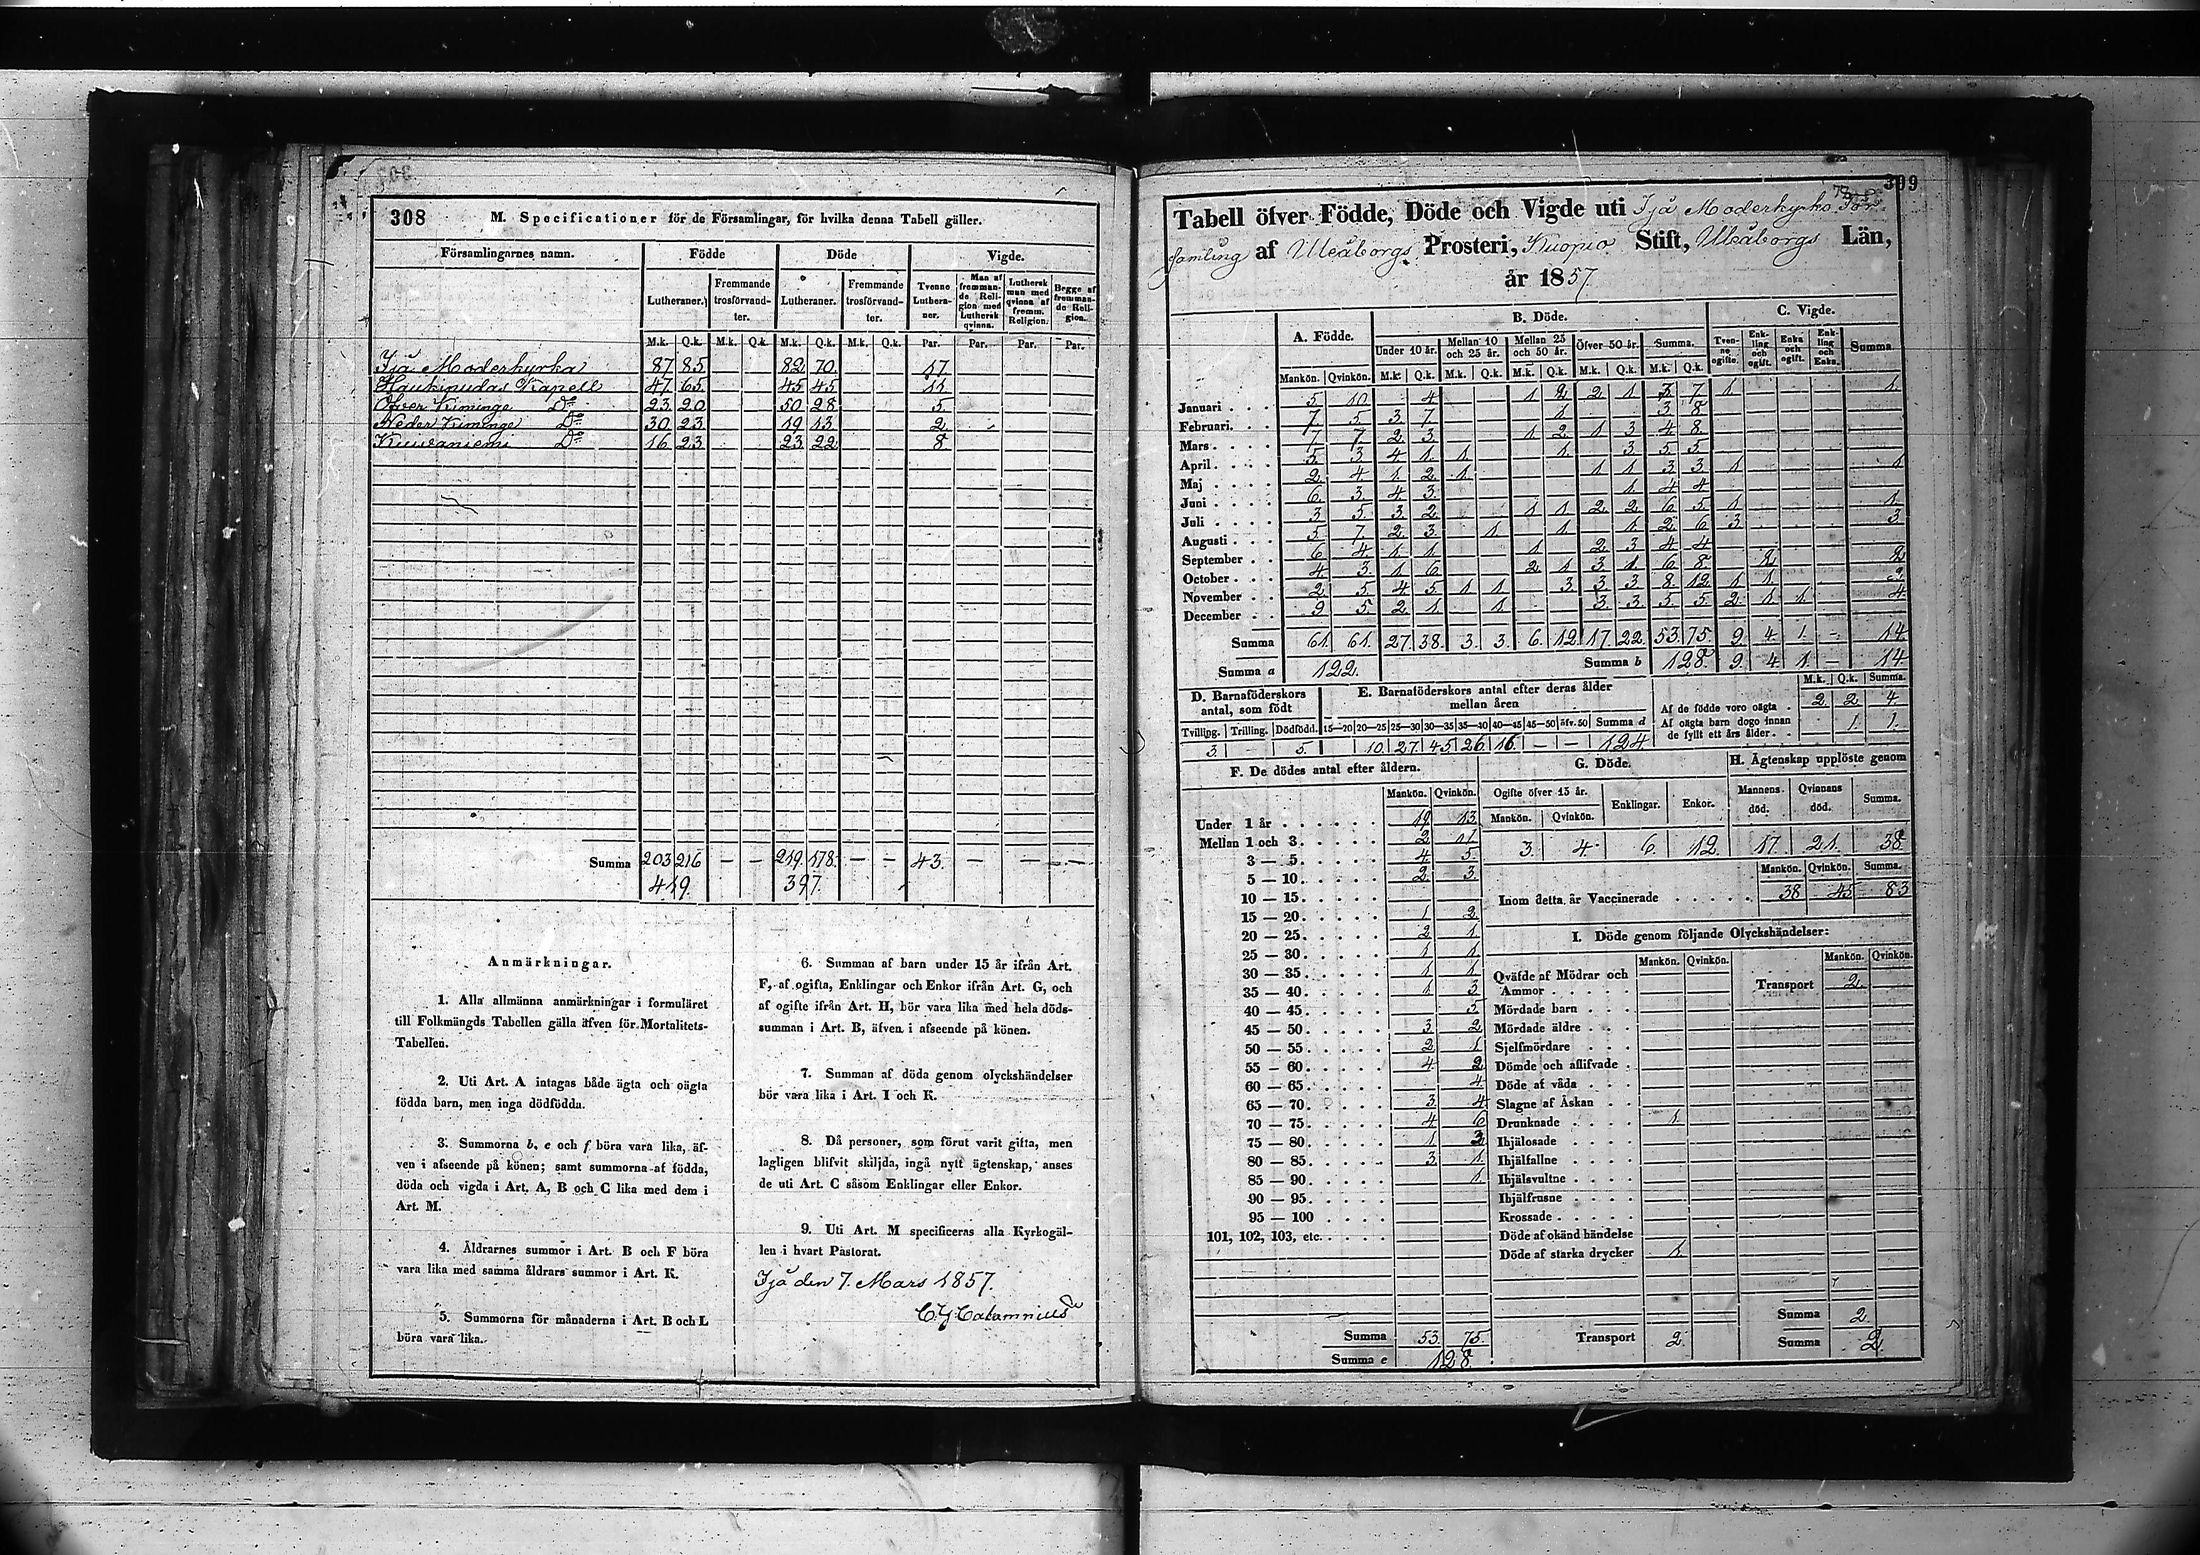 308 M. Specificationer för de Församlingar, för hvilka denna Tabell gäller.
Församlingarnes namn. Födde Döde Vigde.
Lutheraner. Fremmande trosförvandter. Lutheraner. Fremmande trosförvandter. Tvenne Lutheraner. Man af fremmande Religion med Luthersk qvinna. Luthersk man med qvinna af fremm. Religion. Begge af fremmande Religion.
M.k. Q.k. M.k. Q.k. M.k. Q.k. M.k. Q.k. Par. Par. Par. Par.
Ijå Moderkyrka 87 85 82 70 17
Haukipudas Kapell 47 65 45 45 11
Öfver Kiminge Do 23 20 50 28 5
Neder Kiminge Do 30 23 19 13 2
Kuivaniemi Do 16 23 23 22 8
Summa 203 216 — — 219 178 — — 43 — — —
419. 397.
Anmärkningar.
1. Alla allmänna anmärkningar i formuläret
till Folkmängds Tabellen gälla äfven för Mortalitets-
Tabellen.
2. Uti Art. A intagas både ägta och oägta
födda barn, men inga dödfödda.
3. Summorna b, e och f böra vara lika, äf-
ven i afseende på könen; samt summorna af födda,
döda och vigda i Art. A, B och C lika med dem i
Art. M.
4. Åldrarnes summor i Art. B och F böra
vara lika med samma åldrars summor i Art. K.
5. Summorna för månaderna i Art. B och L
böra vara lika.
6. Summan af barn under 15 år ifrån Art.
F, af ogifta, Enklingar och Enkor ifrån Art. G, och
af ogifte ifrån Art. H, bör vara lika med hela döds-
summan i Art. B, äfven i afseende på könen.
7. Summan af döda genom olyckshändelser
bör vara lika i Art. I och K.
8. Då personer, som förut varit gifta, men
lagligen blifvit skiljda, ingå nytt ägtenskap, anses
de uti Art. C såsom Enklingar eller Enkor.
9. Uti Art. M specificeras alla Kyrkogäl-
len i hvart Pastorat.
Ijå den 7. Mars 1857.
C.J. Calamnius
309
Tabell öfver Födde, Döde och Vigde uti Ijå Moderkyrko För
samling af Uleåborgs Prosteri, Kuopio Stift, Uleåborgs Län,
år 1857.
A. Födde. B. Döde. C. Vigde.
Under 10 år. Mellan 10 och 25 år. Mellan 25 och 50 år. Öfver 50 år. Summa. Tvenne ogifte. Enkling och ogift. Enka och ogift. Enkling och Enka. Summa
Mankön. Qvinkön. M.k. Q.k. M.k. Q.k. M.k. Q.k. M.k. Q.k. M.k. Q.k.
Januari 5 10 4 1 2 2 1 3 7 1 1
Februari 7 5 3 7 1 3 8
Mars 7 7 2 3 1 2 1 3 4 8
April 5 3 4 1 1 1 3 5 5
Maj 2 4 1 2 1 1 1 3 3 1 1
Juni 6 3 4 3 1 4 4
Juli 3 5 3 2 1 1 2 2 6 5 1 1
Augusti 5 7 2 3 1 1 1 2 6 3 3
September 6 4 1 1 1 2 3 4 4
October 4 3 1 6 2 1 3 1 6 8 2 2
November 2 5 4 5 1 1 3 3 3 8 12 1 1 2
December 9 5 2 1 1 3 3 5 5 2 1 1 4
Summa 61 61 27 38 3 3 6 12 17 22 53 75 9 4 1 — 14
Summa a 122. Summa b 128 9 4 1 — 14
D. Barnaföderskors antal, som födt
Tvilling. Trilling. Dödfödd.
3. — 5
E. Barnaföderskors antal efter deras ålder mellan åren
15—20 20—25 25—30 30—35 35—40 40—45 45—50 öfv. 50 Summa d
10 27 45 26 16 — — 124
M.k. Q.k. Summa.
Af de födde voro oägta 2 2 4
Af oägta barn dogo innan
de fyllt ett års ålder 1 1
F. De dödes antal efter åldern.
Mankön. Qvinkön.
Under 1 år 19 13
Mellan 1 och 3 2 17
3 — 5 4 5
5 — 10 2 3
10 — 15
15 — 20 1 2
20 — 25 2 1
25 — 30 1 1
30 — 35 1 1
35 — 40 1 3
40 — 45 5
45 — 50 3 2
50 — 55 2 1
55 — 60 4 2
60 — 65 4
65 — 70 3 4
70 — 75 4 6
75 — 80 1 3
80 — 85 3 1
85 — 90 1
90 — 95
95 — 100
101, 102, 103, etc.
Summa 53 75
Summa e 128
G. Döde.
Ogifte öfver 15 år. Enklingar. Enkor.
Mankön. Qvinkön.
3. 4 6 12
H. Ägtenskap upplöste genom
Mannens död. Qvinnans död. Summa.
17 21 38
Mankön. Qvinkön. Summa.
Inom detta år Vaccinerade 38 45 83
I. Döde genom följande Olyckshändelser:
Mankön. Qvinkön. Mankön. Qvinkön.
Qväfde af Mödrar och
Ammor Transport 2
Mördade barn
Mördade äldre
Sjelfmördare
Dömde och aflifvade
Döde af våda
Slagne af Åskan
Drunknade 1
Ihjälosade
Ihjälfallne
Ihjälsvultne
Ihjälfrusne
Krossade
Döde af okänd händelse
Döde af starka drycker 1
Summa 2
Transport 2 Summa 2